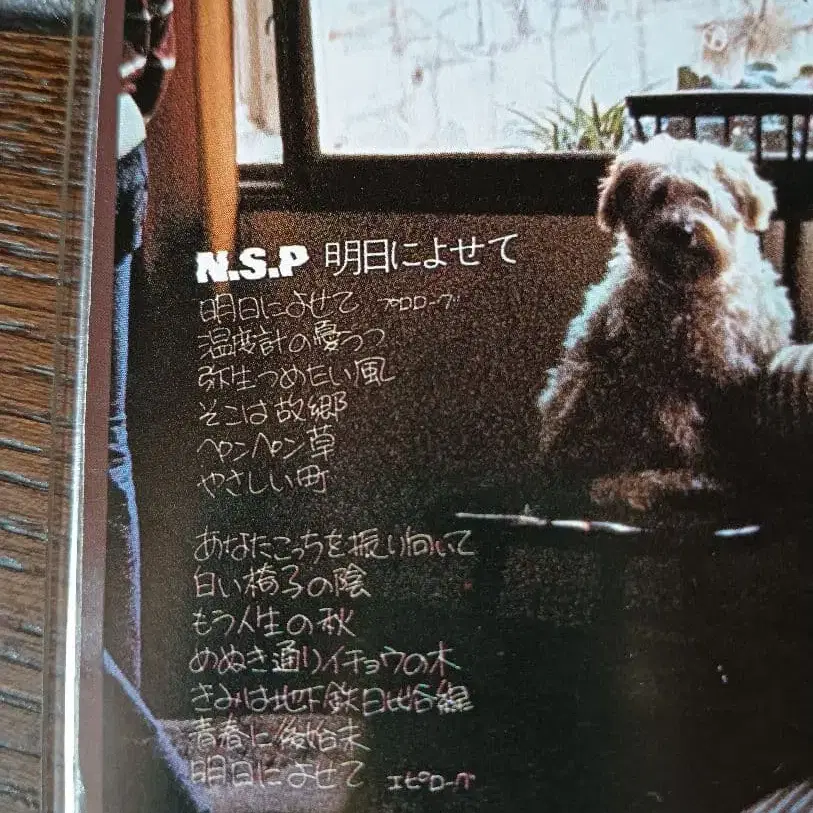 N.S.P 明日によせて
明日によせて プロローグ
温度計の憂うつ
弥生つめたい風
そこは故郷
ペンペン草
やさしい町
あなたこっちを振り向いて
白い椅子の陰
もう人生の秋
めぬき通りイチョウの木
きみは地下鉄日比谷線
青春に後始末
明日によせて エピローグ